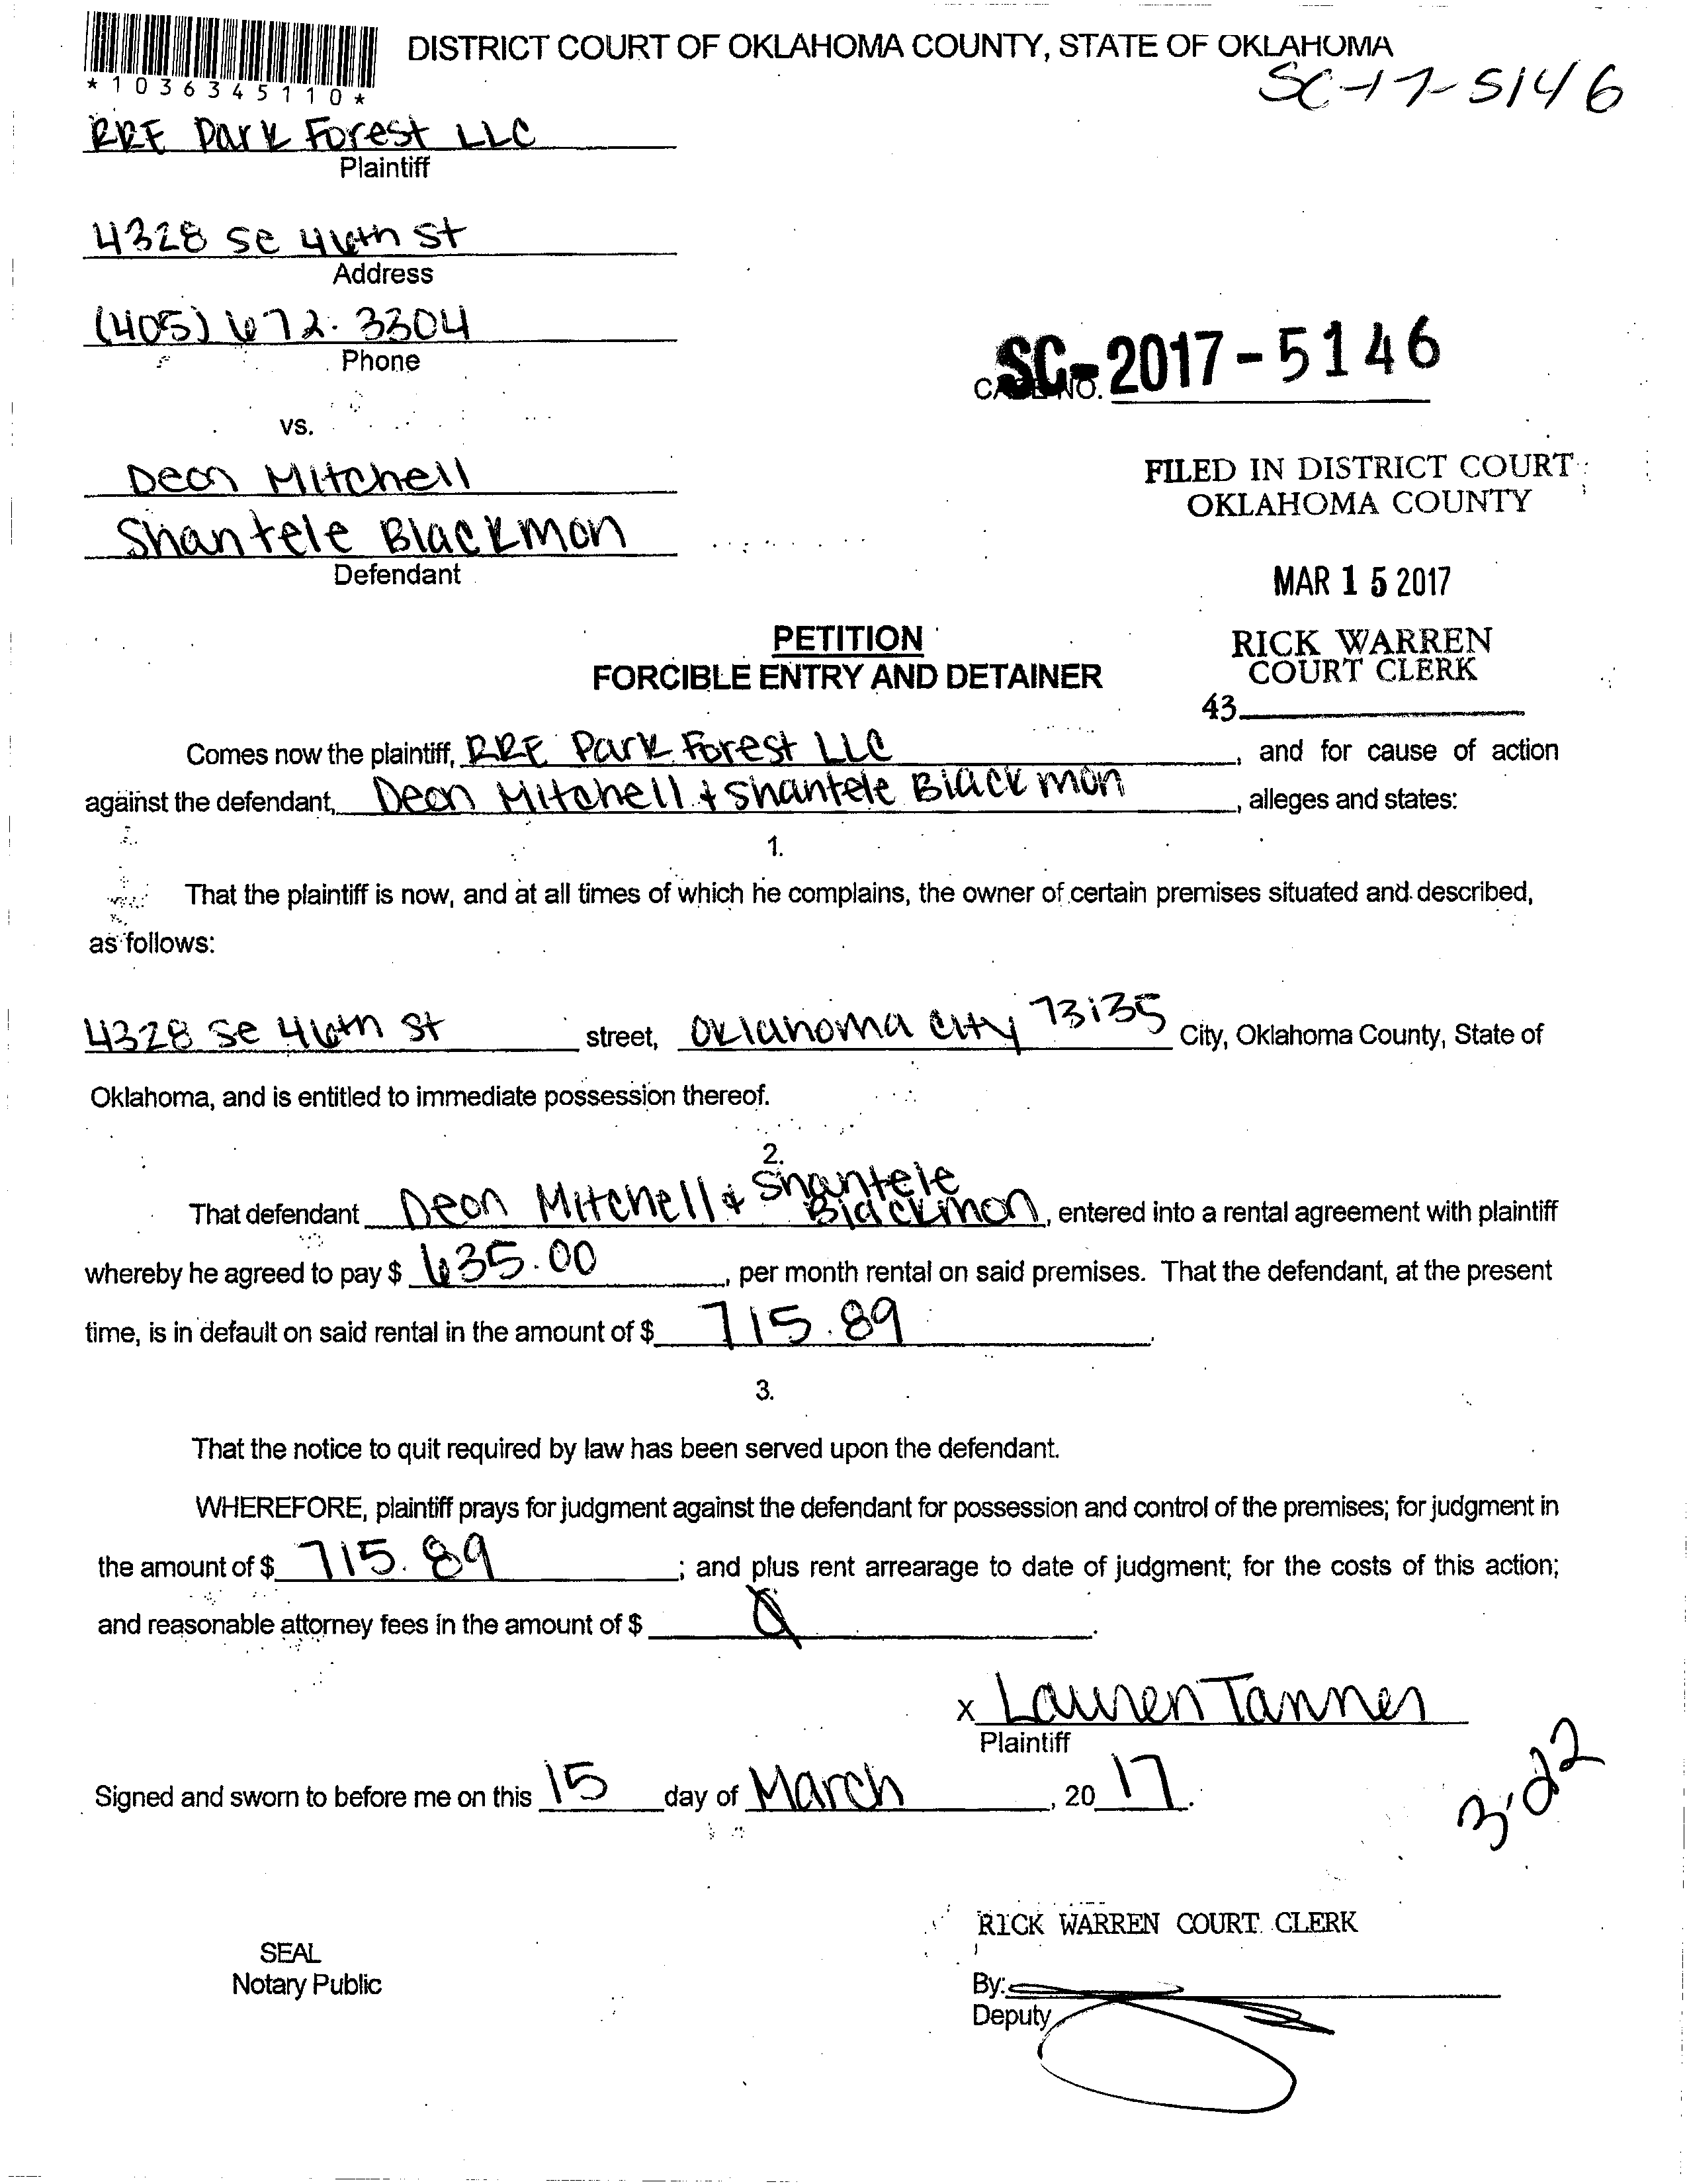 DISTRICT COURT OF OKLAHOMA COUNTY, STATE OF OKLAHOMA
*1036345110*
SC-17-5146
RRE Park Forest LLC
Plaintiff
4328 SE 46th St
Address
(405) 672-3304
Phone
SC-2017-5146
CASE NO.
vs.
Deon Mitchell
Shantele Blackmon
Defendant
FILED IN DISTRICT COURT
OKLAHOMA COUNTY
MAR 15 2017
RICK WARREN
COURT CLERK
43
PETITION
FORCIBLE ENTRY AND DETAINER
Comes now the plaintiff, RRE Park Forest LLC, and for cause of action
against the defendant, Deon Mitchell & Shantele Blackmon, alleges and states:
1.
That the plaintiff is now, and at all times of which he complains, the owner of certain premises situated and described,
as follows:
4328 SE 46th St street, Oklahoma City 73135 City, Oklahoma County, State of
Oklahoma, and is entitled to immediate possession thereof.
2.
That defendant Deon Mitchell & Shantele Blackmon, entered into a rental agreement with plaintiff
whereby he agreed to pay $ 635.00, per month rental on said premises. That the defendant, at the present
time, is in default on said rental in the amount of $ 715.89.
3.
That the notice to quit required by law has been served upon the defendant.
WHEREFORE, plaintiff prays for judgment against the defendant for possession and control of the premises; for judgment in
the amount of $ 715.89; and plus rent arrearage to date of judgment; for the costs of this action;
and reasonable attorney fees in the amount of $ 0.
x Lauren Tanner
Plaintiff
Signed and sworn to before me on this 15 day of March, 20 17.
3-22
RICK WARREN COURT CLERK
SEAL
Notary Public
By:
Deputy